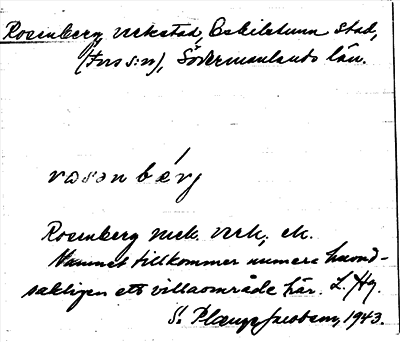 Rosenberg, verkstad, Eskilstuna stad,
(Fors s:n), Södermanlands län.
rosənbérj
Rosenberg mek. verk, ek.
Namnet tillkommer numera huvud-
sakligen ett villaområde här. L. Hg.
S. Jacobsen, 1943.